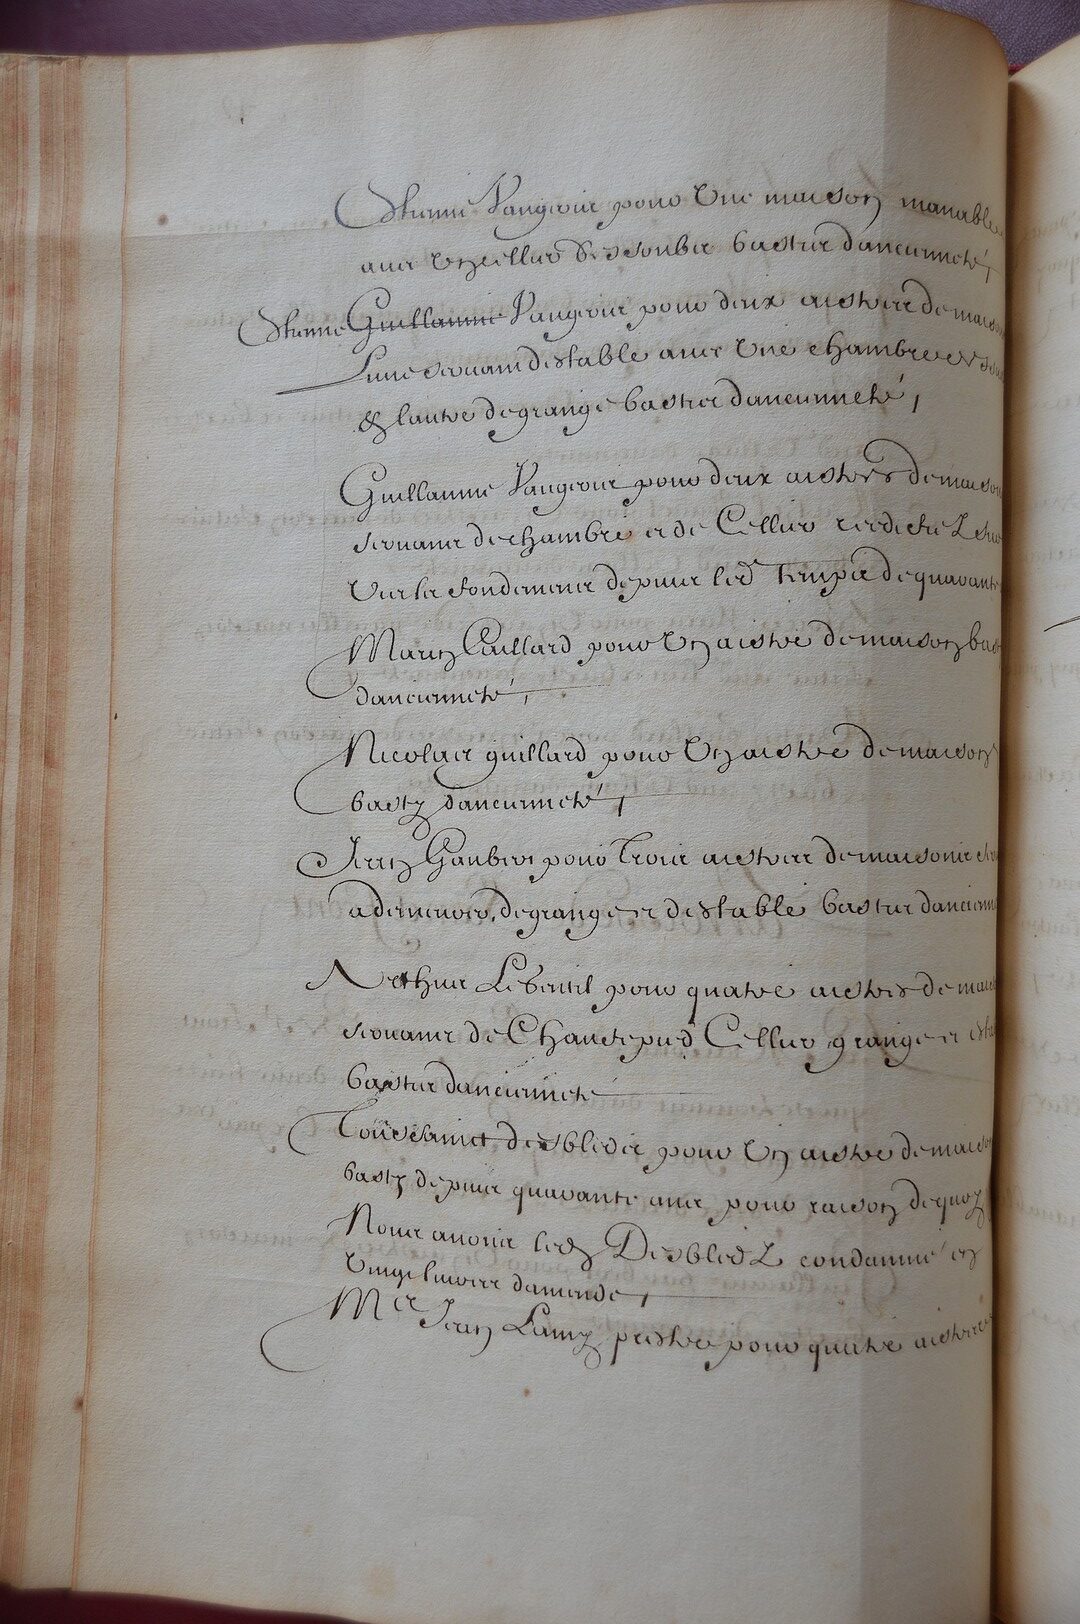 Estienne Vangeoir pour Une maison manable
avec Un cellier dessoubz bastie d'ancienneté,
Estienne Guillaume Vangeoir pour deux aistres de maison
Lune servant destable avec Une chambre
& lautre de grange basties dancienneté,
Guillaume Vangeoir pour deux aistres de maison
servans de chambre et de Cellier reedifiez
Vielz fondemens depuis led temps de quarante
Marin Guillard pour Un aistre de maison
dancienneté,
Nicolas guillard pour Un aistre de maison
basty dancienneté,
Jean Gaubert pour Trois aistres de maisons
a demeurer, de grange et destable bastis
Arthur Lesoutil pour quatre aistres de
servans de Chaudepied Cellier grange et
bastis dancienneté
Toussainct desbledz pour Un aistre de maison
basty depuis quarante ans pour raison dequoy
Nous avons led Desbledz condamné en
Vingt livres damende,
Mre Jean Lamy prestre pour quatre aistres